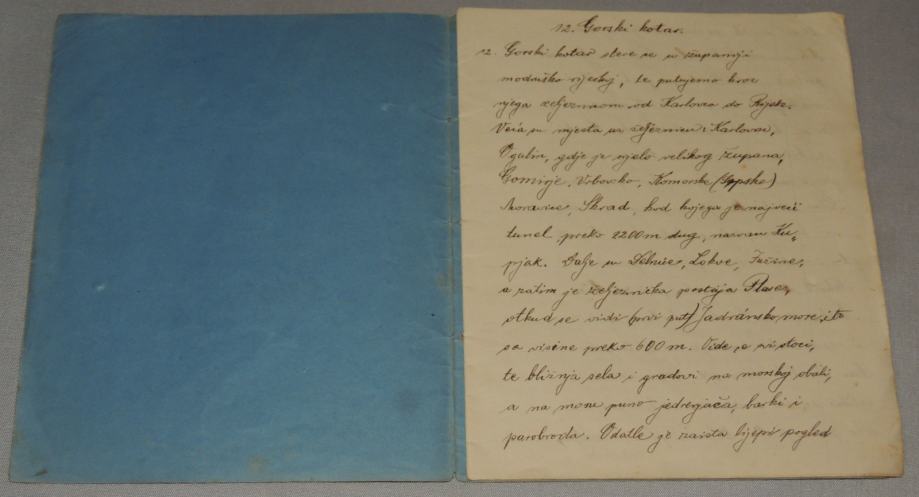 12. Gorski kotar.
12. Gorski kotar stere se u županiji
modruško riječkoj, te putujemo kroz
njega željeznicom od Karlovca do Rijeke.
Veća su mjesta uz željeznicu: Karlovac,
Ogulin, gdje je sjelo velikog župana,
Gomirje, Vrbovsko, Komorske (Srpske)
Moravice, Skrad, kod kojega je najveći
tunel preko 2200 m dug, nazvan Ku„
pjak. Dalje su Delnice, Lokve, Fužine,
a zatim je željeznička postaja Plase,
otkud se vidi (prvi put) Jadransko more, i to
sa visine preko 600 m. Vide se svi otoci,
te bližnja sela i gradovi na morskoj obali,
a na moru puno jedrenjača, barki i
parobroda. Odatle je zaista lijepi pogled